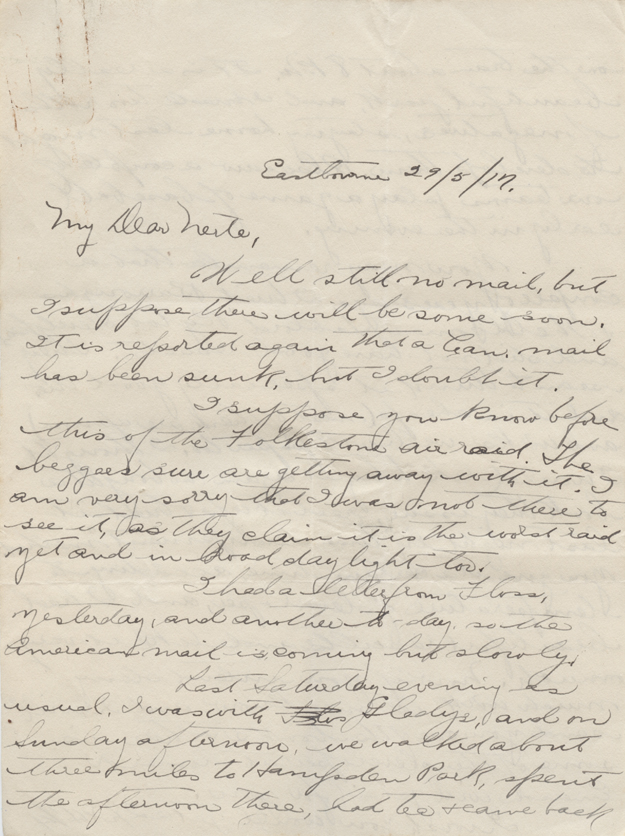 Eastbourne 29/5/17.
My Dear Nerte,
Well still no mail, but
I suppose there will be some soon.
It is reported again that a Can. mail
has been sunk, but I doubt it.
I suppose you know before
this of the Folkestone air raid. The
beggars sure are getting away with it. I
am very sorry that I was not there to
see it, as they claim it is the worst raid
yet and in broad daylight too.
I had a letter from Floss,
yesterday, and another to-day, so the
American mail is coming but slowly.
Last Saturday evening as
usual, I was with Gladys, and on
Sunday afternoon, we walked about
three miles to Hampden Park, spent
the afternoon there, had tea & came back